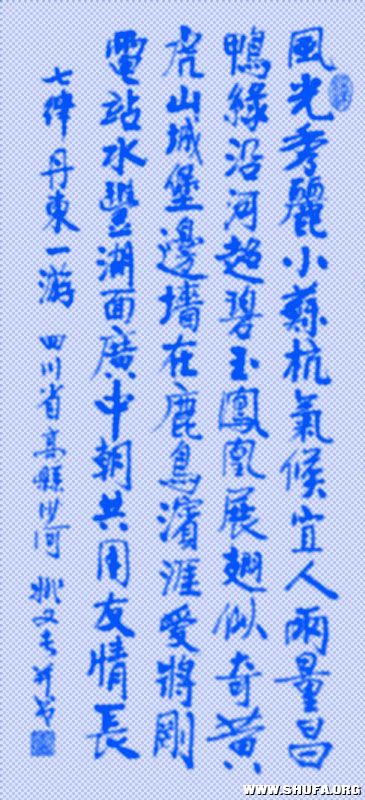 風光秀麗小蘇杭氣候宜人雨量昌
鴨綠沿河超碧玉鳳凰展翅似奇黄
虎山城堡邊墻在鹿鳥濱涯愛將剛
電站水豐湖面廣中朝共用友情長
七律 丹東一游 四川省高縣沙河 姚又
WWW.SHUFA.ORG